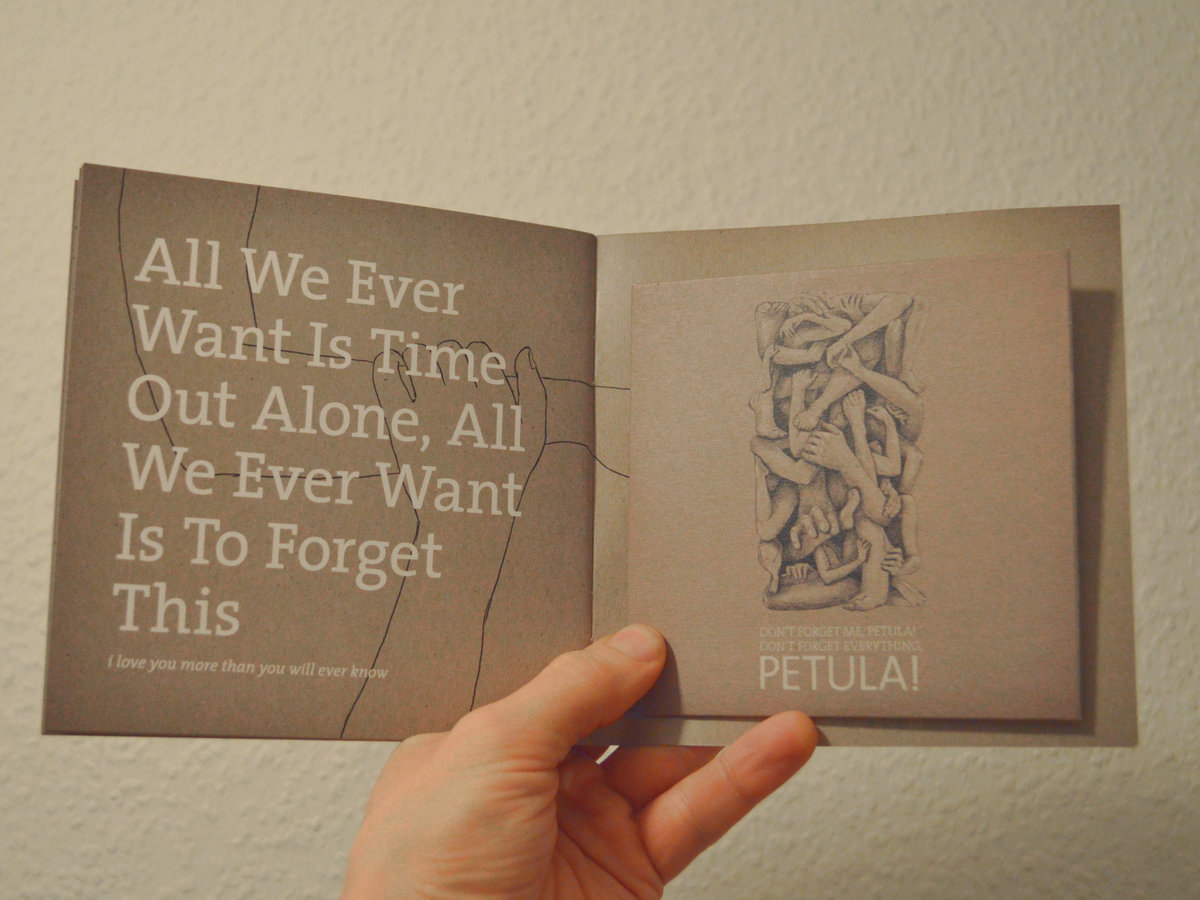 All We Ever
Want Is Time
Out Alone, All
We Ever Want
Is To Forget
This
i love you more than you will ever know
DON'T FORGET ME, PETULA!
DON'T FORGET EVERYTHING,
PETULA!